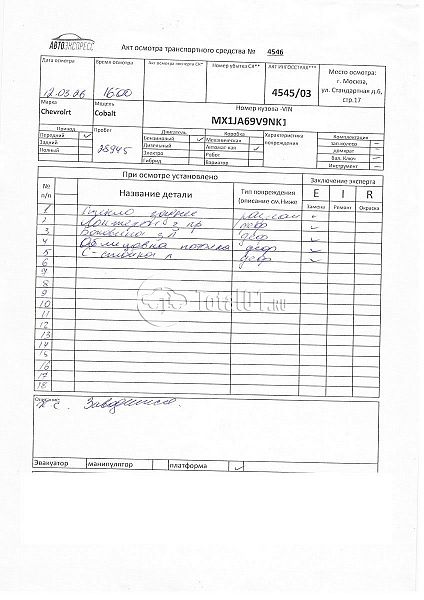 АВТОЭКСПРЕСС
Акт осмотра транспортного средства № 4546
Дата осмотра
Время осмотра
Акт осмотра эксперта СК*
Номер убытка СК**
АКТ ИНГОССТРАХ***
Место осмотра:
г. Москва,
ул. Стандартная д.6,
стр.17
12.03.26
16:00
4545/03
Марка
Модель
Номер кузова -VIN
Chevrolrt
Cobalt
MX1JA69V9NK1
Привод
Пробег
Двигатель
Коробка
Характеристики
повреждения
Комплектация
Передний ✓
Бензиновый ✓
Механическая
зап.колесо —
Задний
Дизельный
Автомат кпп ✓
домкрат —
Полный
25945
Электро
Робот
Бал. Ключ ✓
Гибрид
Вариатор
Инструмент —
№
п/п
При осмотре установлено
Заключение эксперта
Название детали
Тип повреждения
(описание см.Ниже
E I R
Замена Ремонт Окраска
1 Стекло заднее
2 пр деф ✓
3 Боковина з л деф ✓
4 Облицовка потолка деф ✓
5 С-стойка л деф ✓
6
7
8
9
10
11
12
13
14
15
16
17
18
Total01.ru
Заводится.
Эвакуатор манипулятор платформа ✓